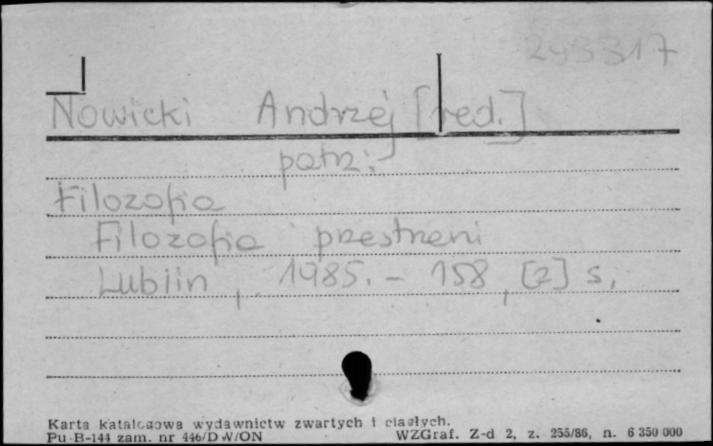 243317
Nowicki Andrzej [red.]
patrz:
Filozofia
Filozofia przestrzeni
Lublin, 1985. - 158, [2] s.
Karta katalogowa wydawnictw zwartych i ciągłych.
Pu-B-144 zam. nr 446/D W/ON WZGraf. Z-d 2, z. 255/86, n. 6 350 000